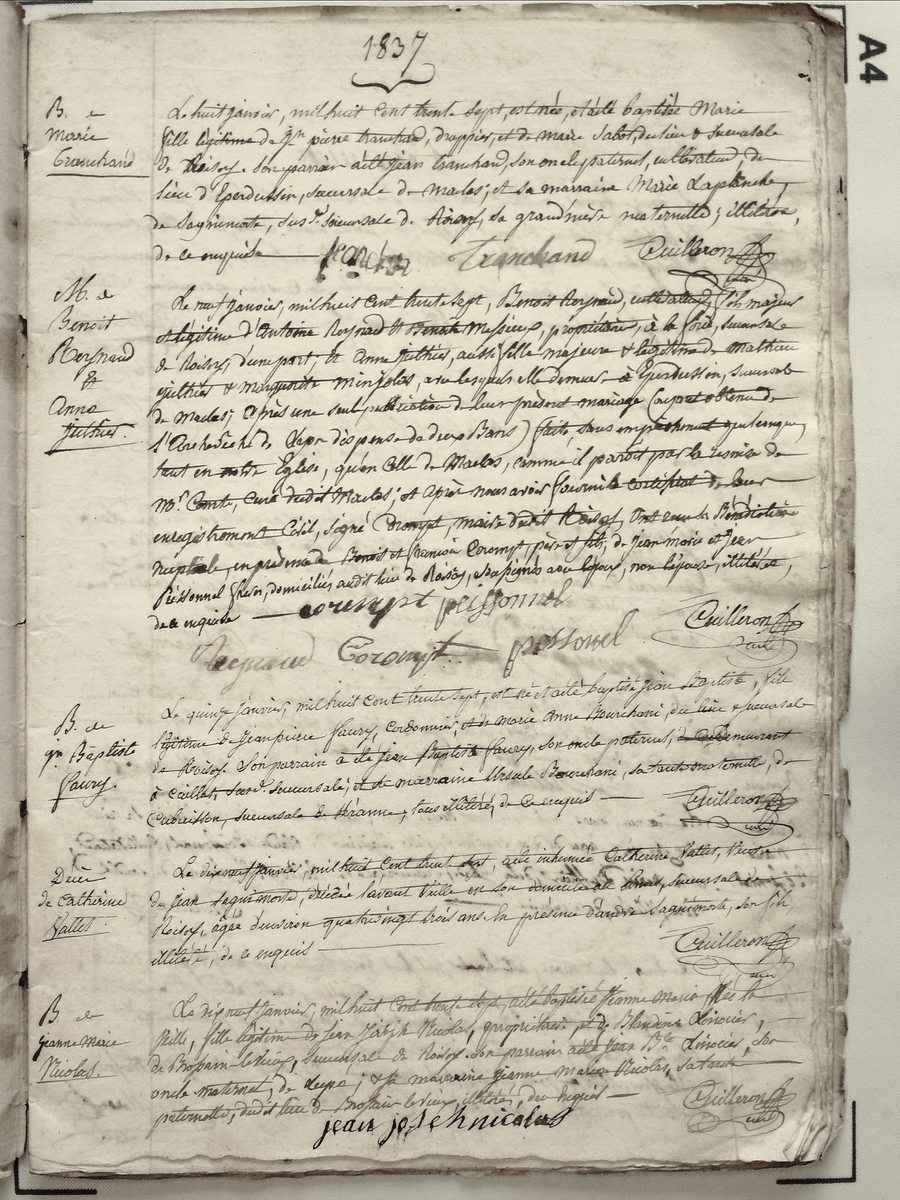 1837
A4
B. de
Marie
Tranchand
Le huit janvier, mil huit cent trente sept, est née, et a été baptisée Marie
fille légitime de Jn pierre tranchand, drappier, et de marie Sabot, du lieu & succursale
de Roisey. Son parrain a été jean tranchand, son oncle paternel, cultivateur, du
lieu d'Eperdussin, succursale de Maclas; et sa marraine Marie Laplanche,
de Sagnemorte, susd. succursale de Roisey, sa grand'mère maternelle; illitérée,
de ce enquise
Tranchand Cuilleron
curé
M. de
Benoit
Reynaud
&
Anne
Juthier.
Le neuf janvier, mil huit cent trente sept, Benoit Reynaud, cultivateur, fils majeur
et légitime d'Antoine Reynaud et Benoite Messieux, propriétaires, à la succursale
de Roisey, d'une part; et Anne Juthier, aussi fille majeure & légitime de Mathieu
Juthier & Marguerite avec lesquels elle demeure à Eperdussin, succursale
de Maclas; après une seule publication de leur présent mariage (ayant obtenu de
l'Archevêché de Lyon dispense de deux Bans) faite, sans empêchement quelconque,
tant en notre Eglise, qu'en celle de Maclas, comme il paroit par la remise de
Mr Comte, curé dudit Maclas; et après nous avoir fourni le certificat de leur
enregistrement Civil, signé Corompt, maire dudit Roisey, ont reçu la Bénédiction
nuptiale, en présence de Benoit et François Corompt, père et fils, de jean marie et jean
Péssonnel frères, domiciliés audit lieu de Roisey, soussignés avec l'époux, non l'épouse, illitérée,
de ce enquise corompt pessonnel Cuilleron
Reynaud Corompt pessonel curé
B. de
jn Baptiste
faury.
Le quinze janvier, mil huit cent trente sept, est né et a été baptisé jean Baptiste, fils
légitime de Jean pierre faury, cordonnier, et de marie Anne Bourchani, du lieu & succursale
de Roisey. Son parrain a été jean Baptiste faury, son oncle paternel, demeurant
à Caillet, susd. succursale; et sa marraine Ursule Bourchani, sa tante maternelle, de
Cubusson, succursale de Véranne, tous illitérés, de ce enquis Cuilleron
curé
Décès
de Catherine
Vallet.
Le dix neuf janvier, mil huit cent trente sept, a été inhumée Catherine Vallet, Veuve
de jean Saquimorte, décédée l'avant Veille en son domicile succursale de
Roisey, âgée d'environ quatre vingt trois ans. En présence d'andré Saquimorte, son fils
illitéré, de ce enquis Cuilleron
curé
B. de
jeanne Marie
Nicolas.
Le dix neuf janvier, mil huit cent trente sept, a été baptisée jeanne marie née la
Veille, fille légitime de jean joseph Nicolas, propriétaire et de Blandine Linocier,
de Brossain le succursale de Roisey. Son parrain a été jean Bte Linocier, son
oncle maternel, de Lupé; & sa marraine jeanne marie Nicolas, sa tante
paternelle, dudit lieu de Brossain le illitérée, de ce enquise Cuilleron
jean josehnicolas curé